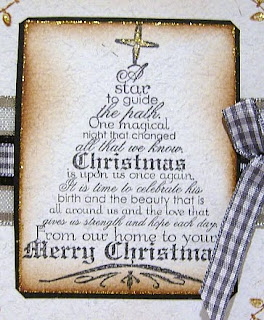 A
star
to guide
the path.
One magical
night that changed
all that we know.
Christmas
is upon us once again.
It is time to celebrate his
birth and the beauty that is
all around us and the love that
gives us strength and hope each day.
From our home to your
Merry Christma